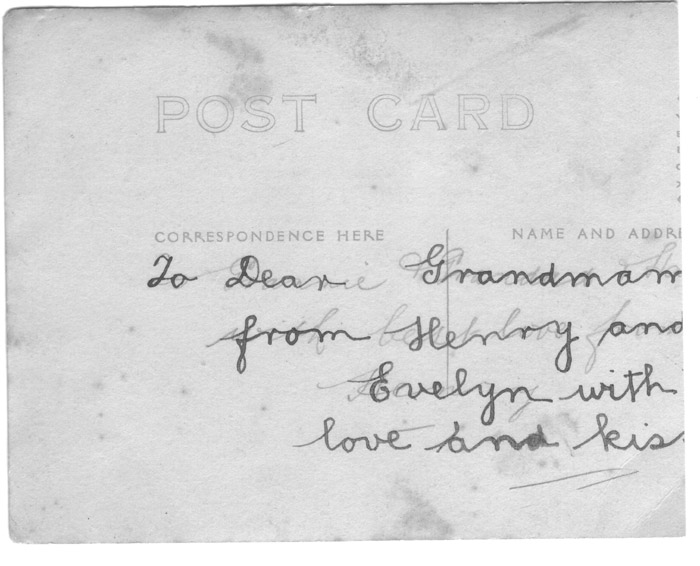 POST CARD
CORRESPONDENCE HERE
NAME AND ADDRE
To Dear Grandmam
from Henry and
Evelyn with
love and kis